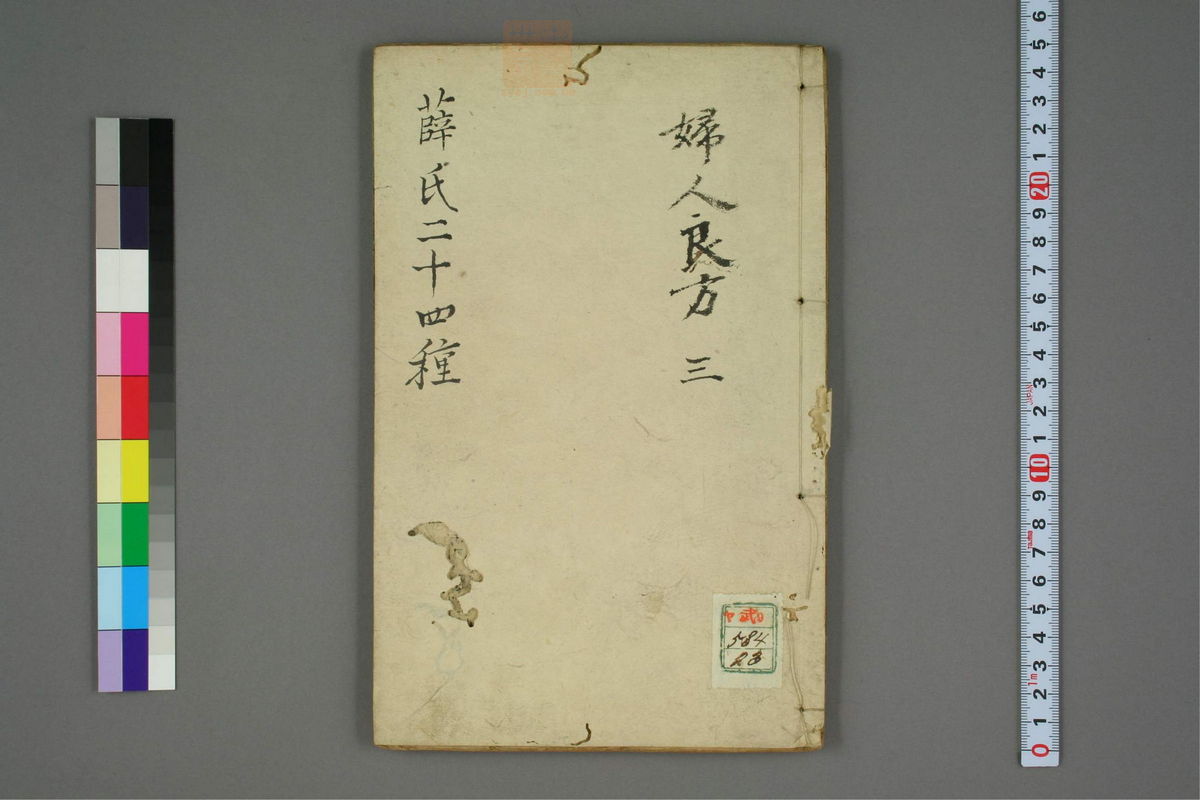 婦人良方 三
薛氏二十四種
584
23
6
5
4
3
2
1
20
9
8
7
6
5
4
3
2
1
10
9
8
7
6
5
4
3
2
1
0
JAPAN
1m